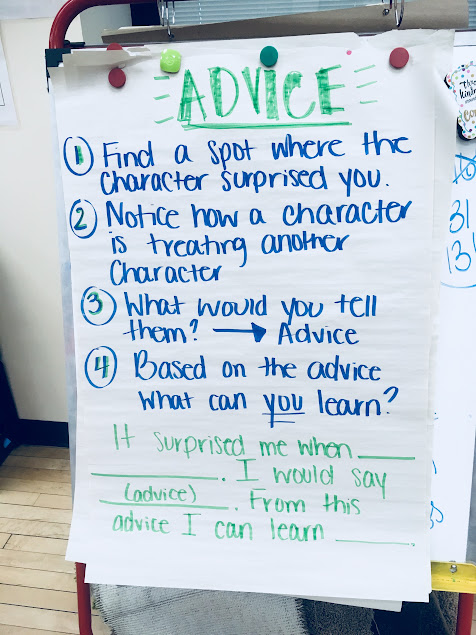 ADVICE
① Find a spot where the
character surprised you.
② Notice how a character
is treating another
character
③ What would you tell
them? → Advice
④ Based on the advice
what can you learn?
It surprised me when ____
________. I would say
(advice). From this
advice I can learn ____.
31